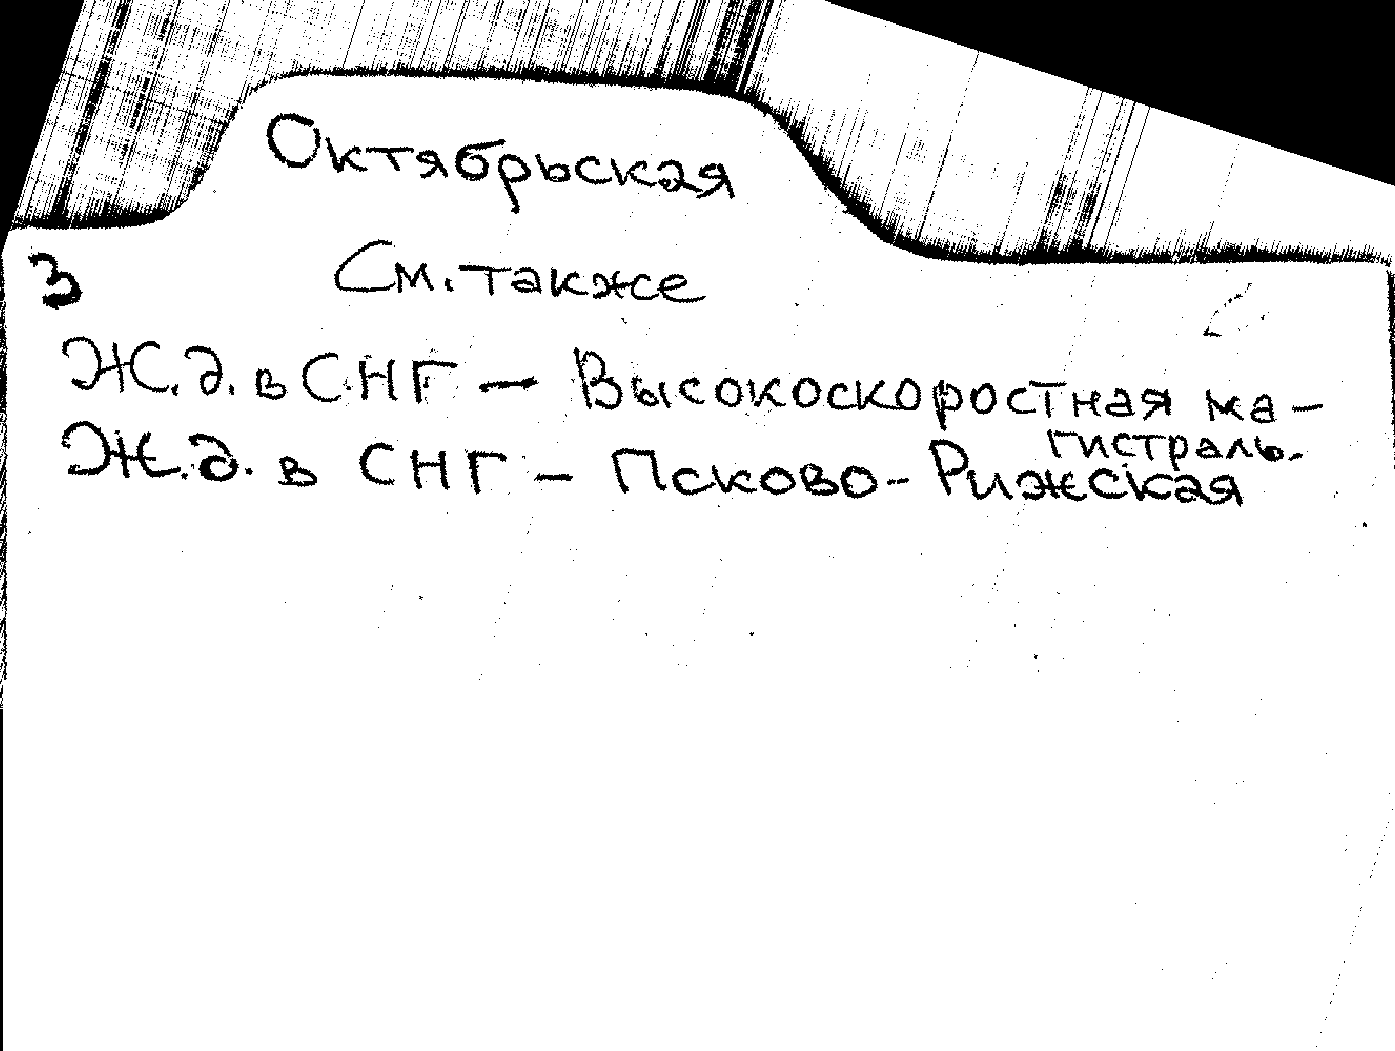 Октябрьская
3 См. также
Ж.д. в СНГ – Высокоскоростная ма-
гистраль.
Ж.д. в СНГ – Псково-Рижская